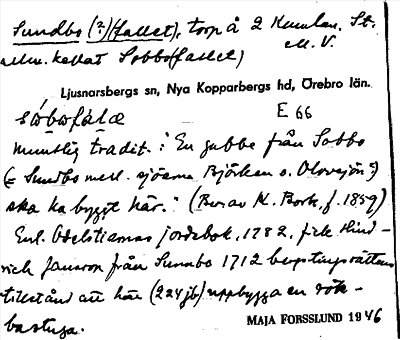 Sundbo (?)(fallet), torp å 2 Humlan. St.
allm. kallat Sobbofallet) m. V.
Ljusnarsbergs sn, Nya Kopparbergs hd, Örebro län.
E 66
muntlig tradit.: "En gubbe från Sobbo
(= Sundbo mell. sjöarna Björken o. Olovsjön?)
ska ha byggt här." (Berär. K. Bork, f. 1859)
Enl. Odelstiernas jordebok, 1782, fick Hind-
rich Jansson från Sunnbo 1712 bergstingsrättens
tillstånd att här (224 jb) uppbygga en rök-
bastuga.
MAJA FORSSLUND 1946